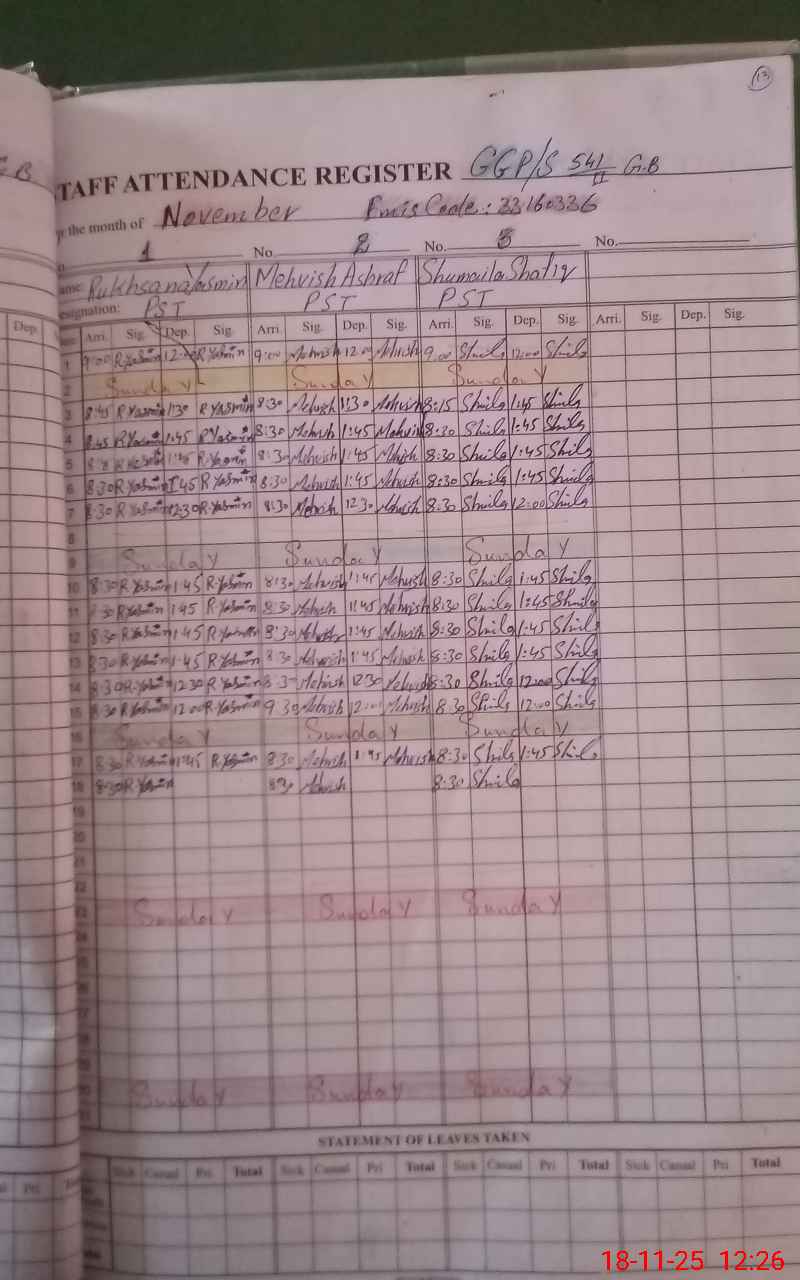 13
STAFF ATTENDANCE REGISTER GGP/S 541/II G.B
the month of November Emis Code: 33160336
1 No. 2 No. 3 No.
Rukhsana Yasmin Mehvish Ashraf Shumaila Shafiq
esignation: PST PST PST
Dep. Arri. Sig. Dep. Sig. Arri. Sig. Dep. Sig. Arri. Sig. Dep. Sig. Arri. Sig. Dep. Sig.
1 9:00 R Yasmin 12:00 R Yasmin 9:00 Mehvish 12:00 Mehvish 9:00 Shila 12:00 Shila
2 Sunday Sunday Sunday
3 8:45 R Yasmin 1:30 R Yasmin 8:30 Mehvish 1:30 Mehvish 8:15 Shila 1:45 Shila
4 8:45 R Yasmin 1:45 R Yasmin 8:30 Mehvish 1:45 Mehvish 8:30 Shila 1:45 Shila
5 R Yasmin 1:45 R Yasmin 8:30 Mehvish 1:45 Mehvish 8:30 Shila 1:45 Shila
6 8:30 R Yasmin 1:45 R Yasmin 8:30 Mehvish 1:45 Mehvish 8:30 Shila 1:45 Shila
7 8:30 R Yasmin 12:30 R Yasmin 8:30 Mehvish 12:30 Mehvish 8:30 Shila 12:00 Shila
8
9 Sunday Sunday Sunday
10 8:30 R Yasmin 1:45 R Yasmin 8:30 Mehvish 1:45 Mehvish 8:30 Shila 1:45 Shila
11 8:30 R Yasmin 1:45 R Yasmin 8:30 Mehvish 1:45 Mehvish 8:30 Shila 1:45 Shila
12 8:30 R Yasmin 1:45 R Yasmin 8:30 Mehvish 1:45 Mehvish 8:30 Shila 1:45 Shila
13 8:30 R Yasmin 1:45 R Yasmin 8:30 Mehvish 1:45 Mehvish 8:30 Shila 1:45 Shila
14 8:30 R Yasmin 12:30 R Yasmin 8:30 Mehvish 12:30 Mehvish 8:30 Shila 12:00 Shila
15 8:30 R Yasmin 12:00 R Yasmin 9:30 Mehvish 12:00 Mehvish 8:30 Shila 12:00 Shila
16 Sunday Sunday Sunday
17 8:30 R Yasmin 1:45 R Yasmin 8:30 Mehvish 1:45 Mehvish 8:30 Shila 1:45 Shila
18 8:30 R Yasmin 8:30 Mehvish 8:30 Shila
19
20
21
22
23 Sunday Sunday Sunday
24
30 Sunday Sunday Sunday
STATEMENT OF LEAVES TAKEN
Pri Sick Casual Pri Total Sick Casual Pri Total Sick Casual Pri Total Sick Casual Pri Total
18-11-25 12:26